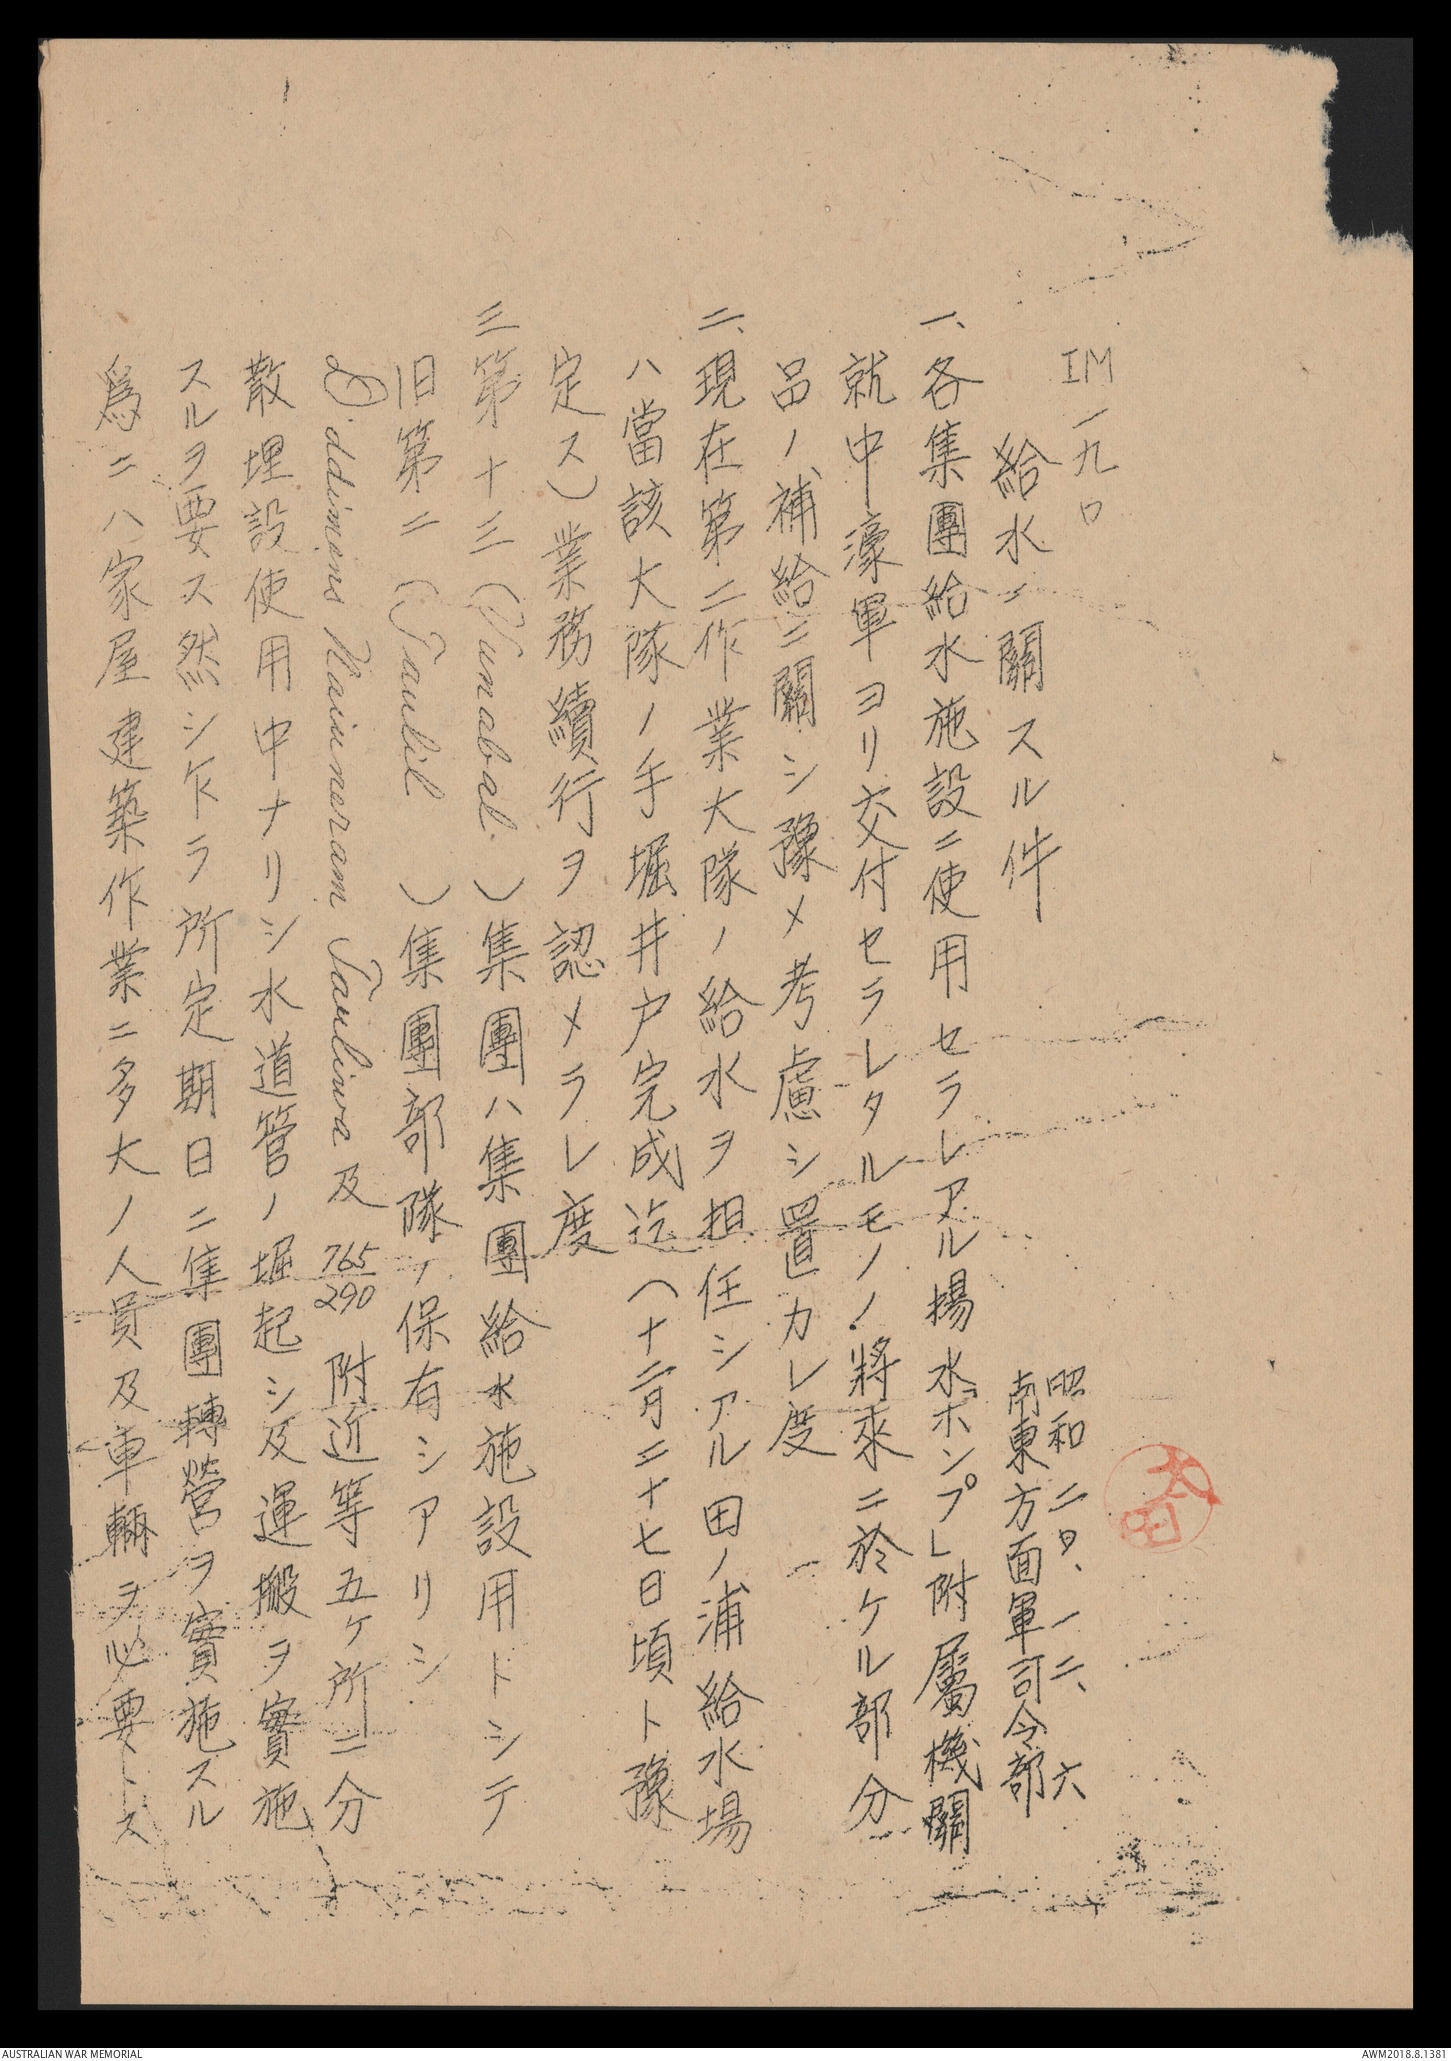 IM一九〇
給水ニ關スル件
昭和二〇、一二、六
南東方面軍司令部
太田
一、各集團給水施設ニ使用セラレアル揚水「ポンプ」附屬機關
就中濠軍ヨリ交付セラレタルモノノ將來ニ於ケル部分
品ノ補給ニ關シ豫メ考慮シ置カレ度
二、現在第二作業大隊ノ給水ヲ担任シアル田ノ浦給水場
ハ當該大隊ノ手堀井戸完成迄(十二月二十七日頃ト豫
定ス)業務續行ヲ認メラレ度
三第十三(Vunabal)集團ハ集團給水施設用トシテ
旧第二(Taulil)集團部隊ノ保有シアリシ
Nainneram Tauliwa及765/290附近等五ケ所ニ分
散埋設使用中ナリシ水道管ノ堀起シ及運搬ヲ實施
スルヲ要ス然シ乍ラ所定期日ニ集團轉營ヲ實施スル
爲ニハ家屋建築作業ニ多大ノ人員及車輛ヲ必要トス
AUSTRALIAN WAR MEMORIAL
AWM2018.8.1381